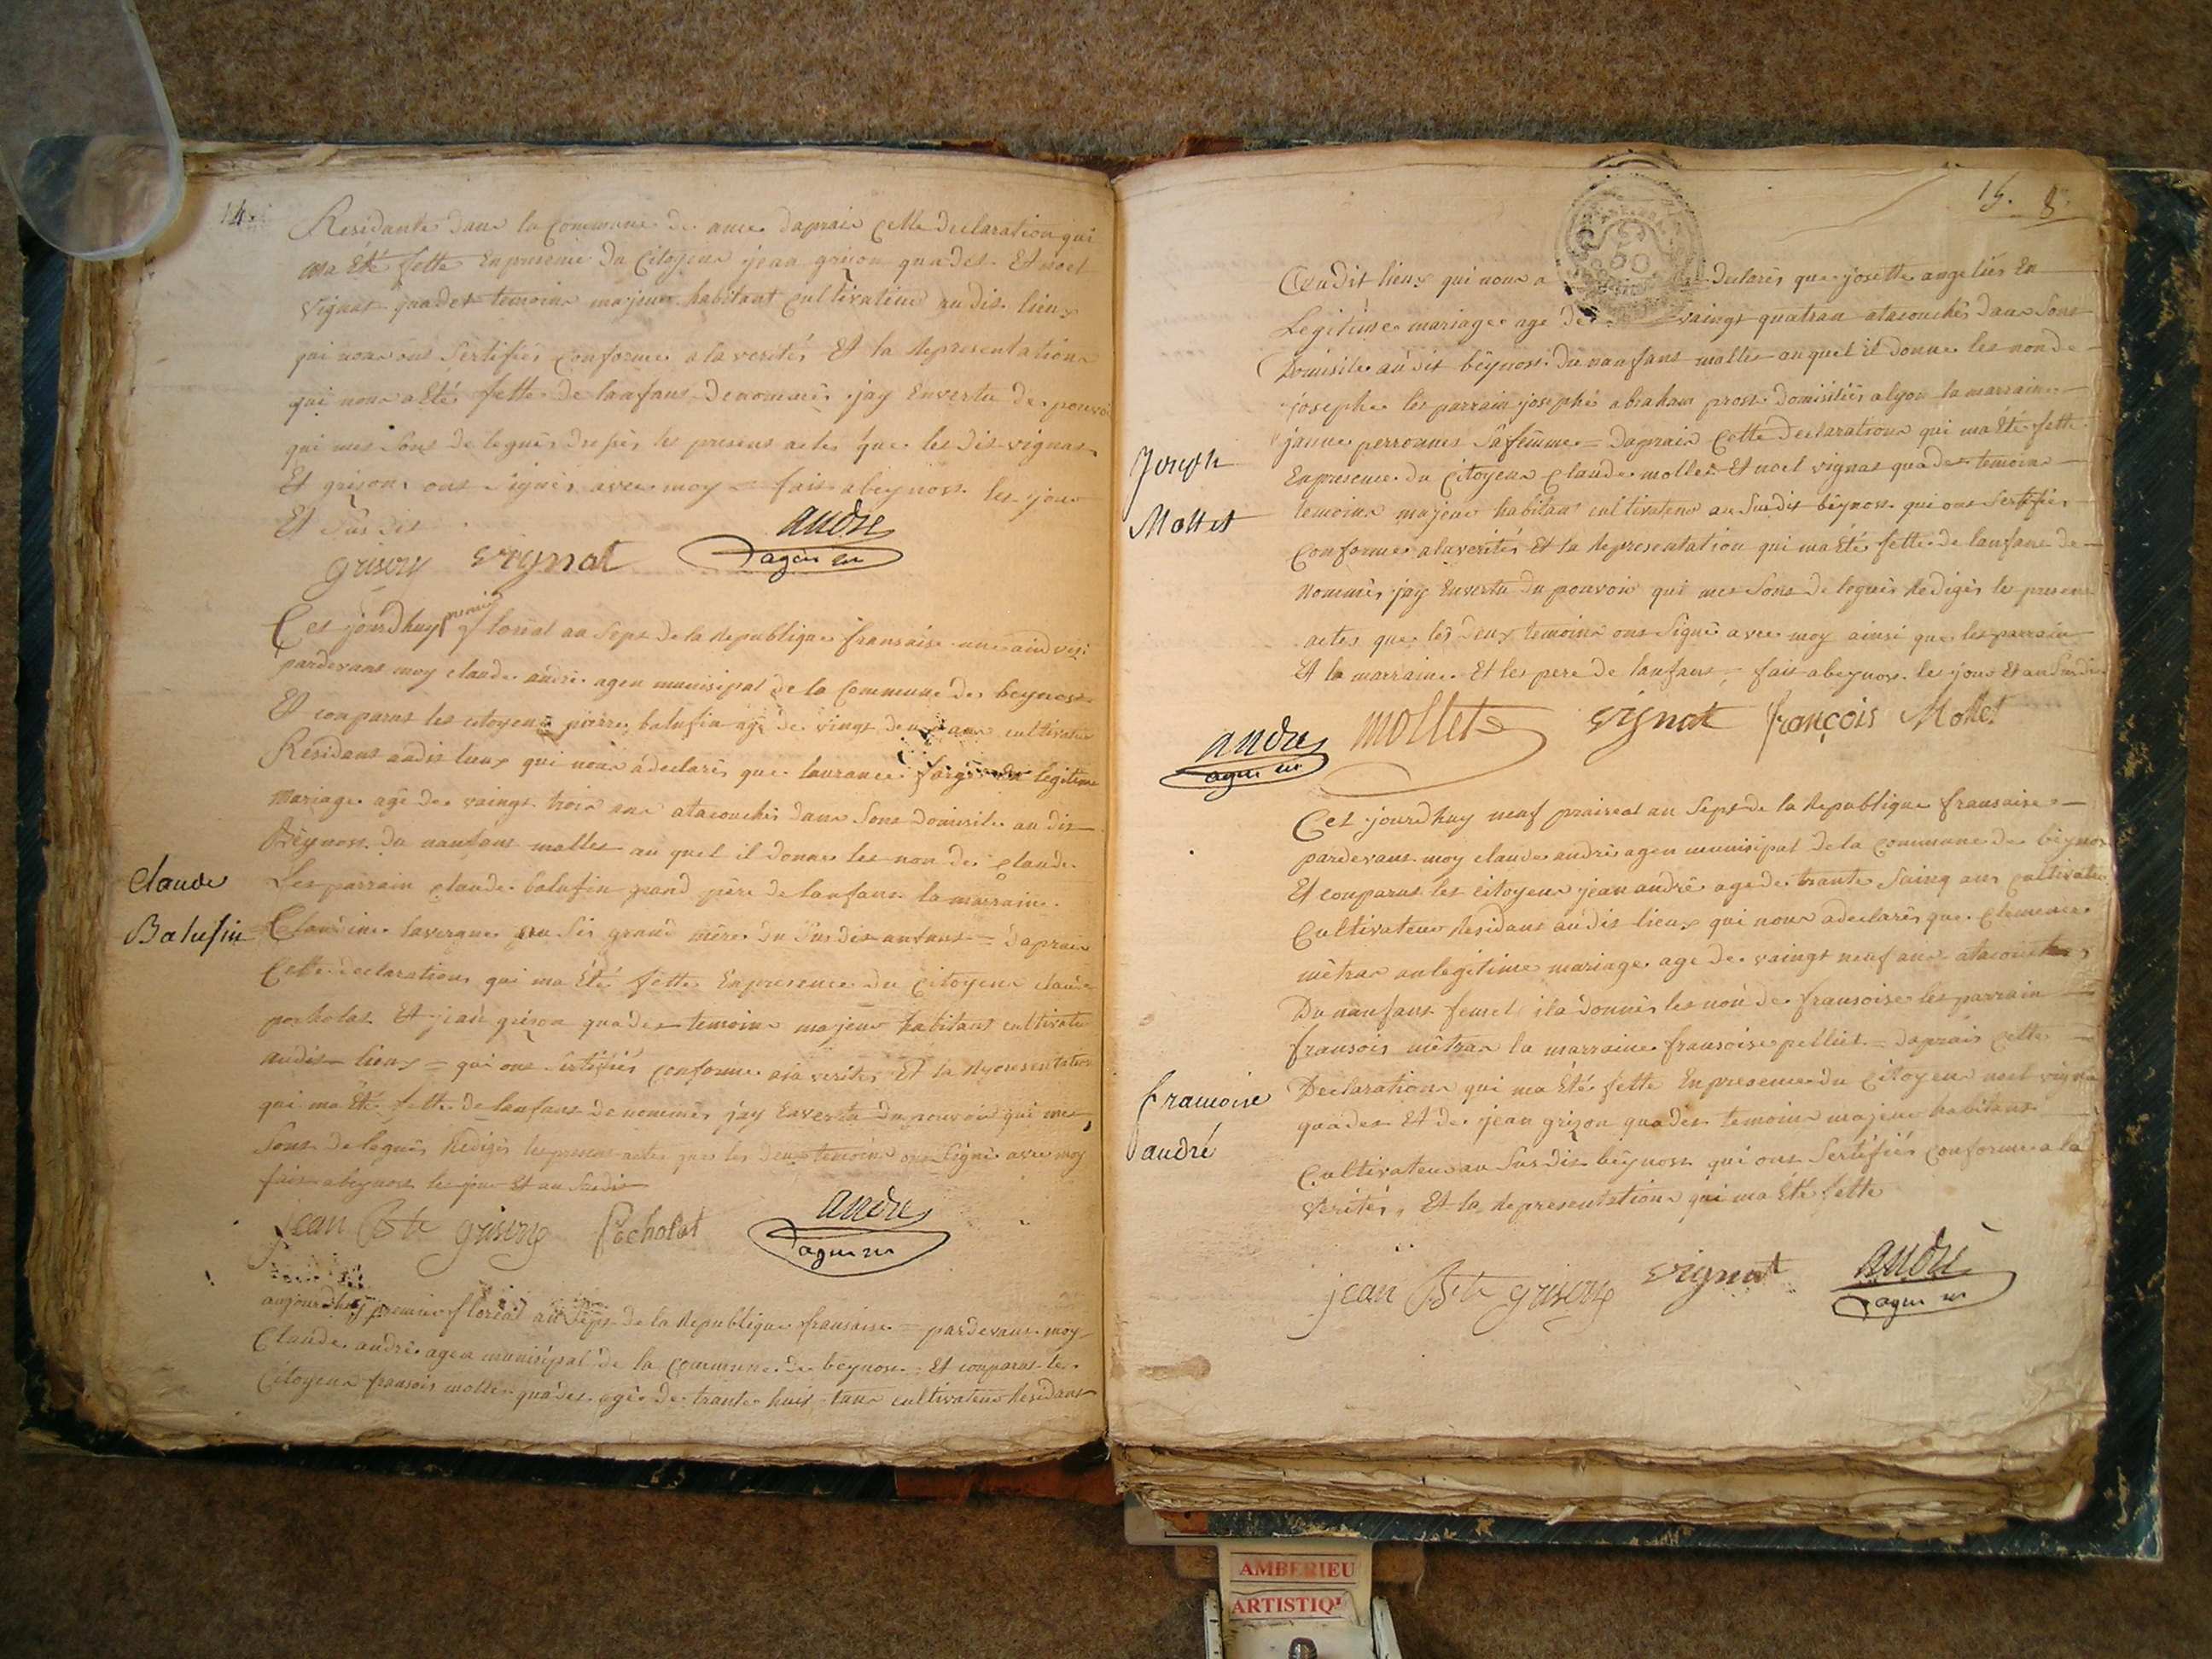 14.
Residante dans la Commune de ance daprais Cette declaration qui
ma Eté fette Enpresence du Citoyens jean grison quadet Et noel
vignat quadet temoins majeur habitant Cultivateur audit lieux
qui nous ont Sertifiés Conforme a la verités Et la Representations
qui nous a Eté fette de lanfant denommés jay Envertu de pouvoir
qui mes Sont delegués dressés les presens actes que les dit vignat
Et grison ont Signés avec moy = fait a beynost les jour
Et Susdit
grisony vignat andre
agen m
Cet jourdhuy premier floreal an Sept de la Republique fransaise une aindivisi
pardevant moy claude andre agen munisipal de la Commune de beynost
Et conparus les citoyens pierre balufin agé de vingt deux ans cultivateur
Residant audit lieux qui nous a declarés que laurance legitime
Mariage agé de vaingt trois ans atacouchés dans Sont domisile audit
Beynost du nanfant malles au quel il donne les non de claude
Les parrain claude balufin grand père de lanfant la marraine
Claudine lavergne grand mère du Susdit anfant = daprais
Cette declarations qui ma Eté fette Enpresence du Citoyens claude
pocholat Et jean grison quadet temoins majeur habitant cultivateur
audit lieux = qui ont Sertifiés Conforme a la verités Et la Representation
qui ma Eté fette de lanfant denommés jay Envertu du pouvoir qui mes
Sont delegués Redigés les present actes que les deux temoins ont Signé avec moy
fait a beynost le jour Et an Susdit
Claude
Balufin
jean Bte grisony Pocholat andre
agen m
aujourdhuy premier floreal an Sept de la Republique fransaise = pardevant moy
Claude andré agen munisipal de la Commune de beynost Et conparus les
Citoyens fransois mollet quadet agé de trante huit tans cultivateur Residant
15. 8.
Audit lieux qui nous a declarés que josette angeliés En
Legitime mariage age de vaingt quatran atacouchés dans Sont
Domisile au dit beynost du nanfant malles au quel il donne les non de
josephe les parrain josephe abraham prost domisiliés a lyon la marraine
janne perronnet Sa femme = daprais Cette declarations qui ma Eté fette
Enpresence du Citoyens Claude mollet Et noel vignat quadet temoins
temoins majeur habitant cultivateur au Susdit beynost qui ont Sertifiés
Conforme a la verités Et la Representation qui ma Eté fette de lanfant de
nommés jay Envertu du pouvoir qui mes Sont delegués Redigés les present
actes que les deux temoins ont Signé avec moy ainsi que les parrain
Et la marraine Et les pere de lanfant = fait a beynost les jour Et an Susdit
Joseph
Mollet
andre mollet vignat françois Mollet
agen m
Cet jourdhuy neuf praireal an Sept de la Republique fransaise
pardevant moy claude andré agen munisipal de la Commune de beynost
Et conparus les citoyens jean andré age de trante Sainq ans cultivateur
Cultivateur Residant audit lieux qui nous a declarés que Clemence
mêtras anlegitime mariage age de vaingt neuf ans atacouchés
Du nanfant femel il a donnés les non de fransoise les parrain
fransois mêtras la marraine fransoise pelliet = daprais cette
Declarations qui ma Eté fette Enpresence du Citoyens noel vignat
quadet Et de jean grison quadet temoins majeur habitant
Cultivateur au Susdit beynost qui ont Sertifiés Conforme a la
verités, Et la Representations qui ma Eté fette
francoise
andré
jean Bte grisony vignat andré
agen m
AMBERIEU
ARTISTIQ